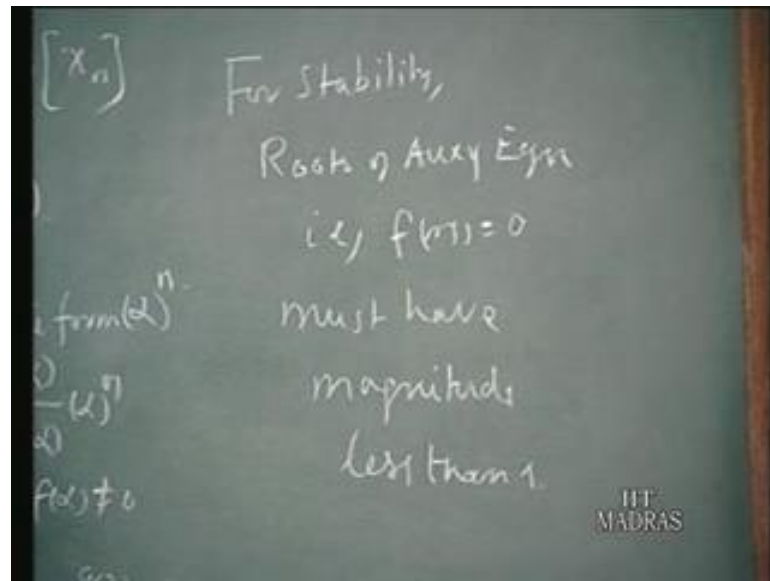 [xₙ]
For Stability,
Roots of Auxy Eqn
ie, f(m) = 0
form (α)ⁿ
must have
(α)ⁿ
α)
magnitude
less than 1
f(α) ≠ 0
IIT
MADRAS